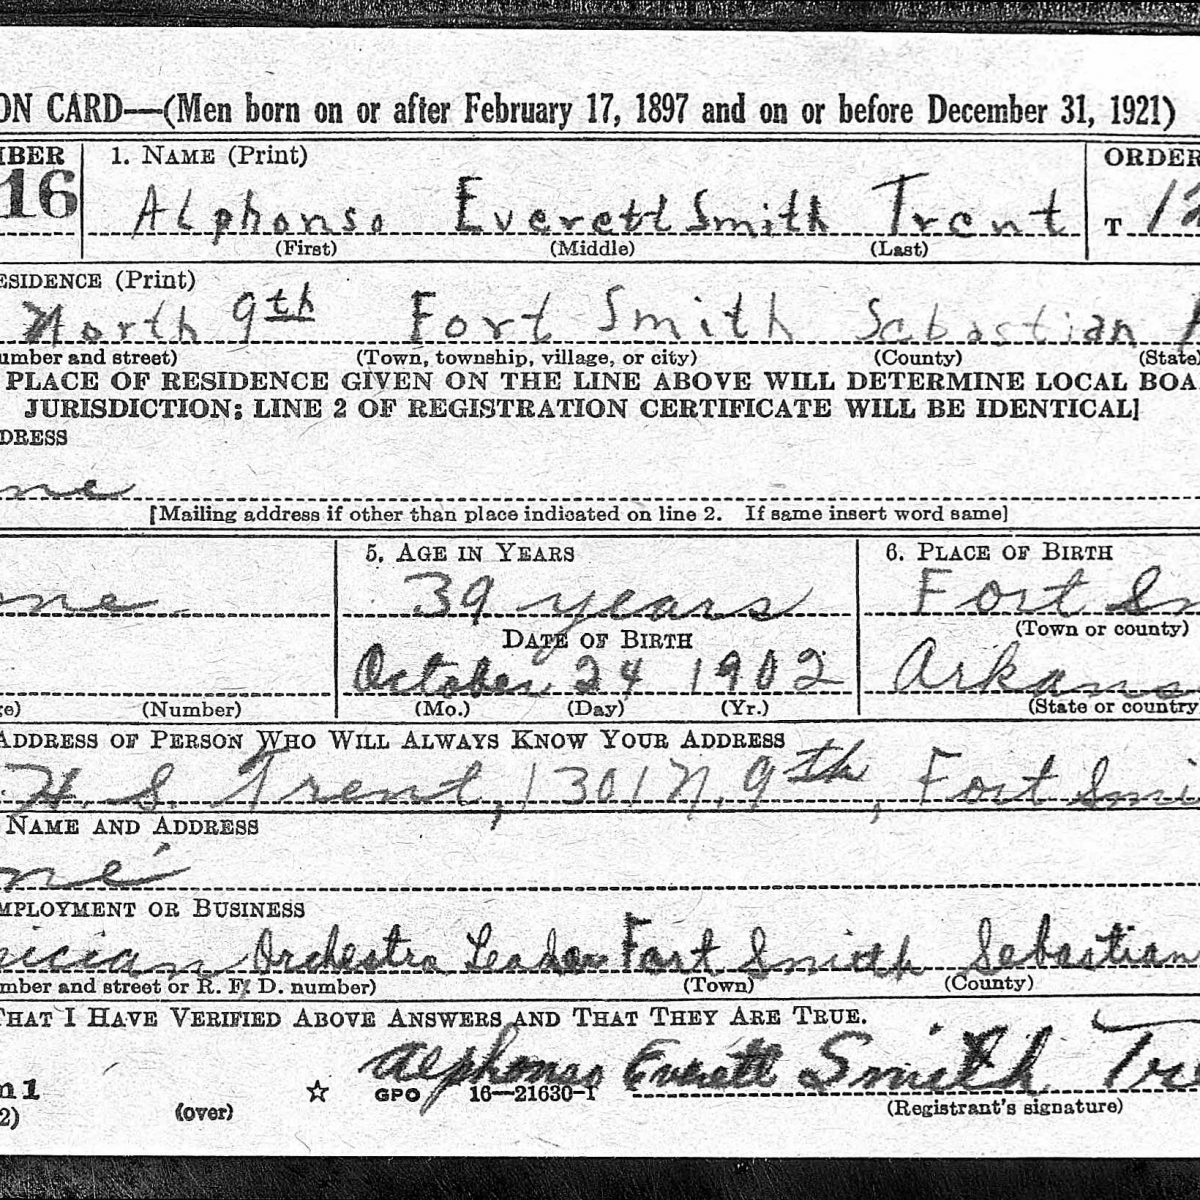 ON CARD—(Men born on or after February 17, 1897 and on or before December 31, 1921)
MBER 1. NAME (Print) ORDER
16 Alphonso Everett Smith Trent T 12
(First) (Middle) (Last)
ESIDENCE (Print)
North 9th Fort Smith Sebastian
umber and street) (Town, township, village, or city) (County) (State)
PLACE OF RESIDENCE GIVEN ON THE LINE ABOVE WILL DETERMINE LOCAL BOA
JURISDICTION; LINE 2 OF REGISTRATION CERTIFICATE WILL BE IDENTICAL]
DRESS
me
[Mailing address if other than place indicated on line 2. If same insert word same]
5. AGE IN YEARS 6. PLACE OF BIRTH
one 39 years Fort Sm
DATE OF BIRTH (Town or county)
October 24 1902 Arkans
ge) (Number) (Mo.) (Day) (Yr.) (State or country
ADDRESS OF PERSON WHO WILL ALWAYS KNOW YOUR ADDRESS
H. S. Trent, 1301 N. 9th, Fort Smi
NAME AND ADDRESS
ne
MPLOYMENT OR BUSINESS
sician Orchestra Leader Fort Smith Sebastian
mber and street or R. F. D. number) (Town) (County)
THAT I HAVE VERIFIED ABOVE ANSWERS AND THAT THEY ARE TRUE.
Alphonso Everett Smith Tre
m 1 GPO 16—21630-1
2) (over) (Registrant's signature)